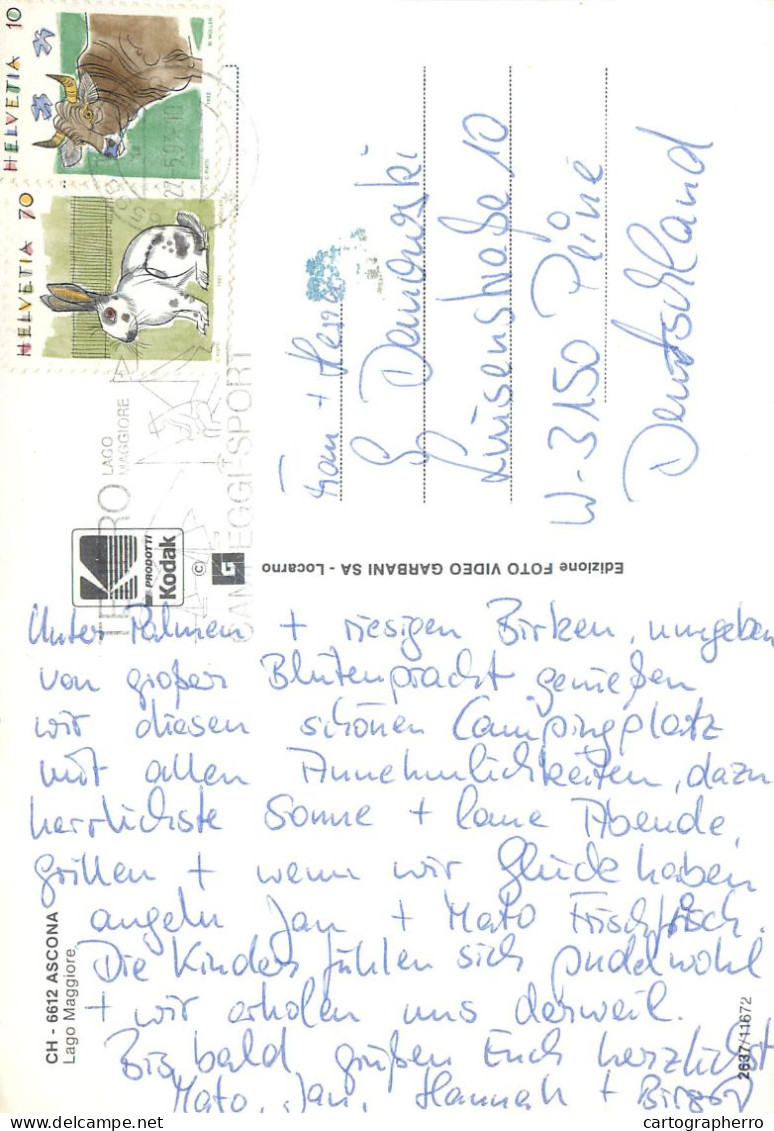 HELVETIA 10
HELVETIA 70
LAGO
MAGGIORE
PRODOTTI
Kodak
©
G
Edizione FOTO VIDEO GARBANI SA - Locarno
Frau + Herr
Luisenstraße 10
W-3150 Peine
Deutschland
Unter Palmen + riesigen Birken, umgeben
von großer Blütenpracht genießen
wir diesen schönen Campingplatz
mit allen Annehmlichkeiten, dazu
herrlichste Sonne + laue Abende,
grillen + wenn wir Glück haben
angeln Jan + Mato Frischfisch.
Die Kinder fühlen sich pudelwohl
+ wir erholen uns derweil.
Bis bald, grüßen Euch herzlichst
Mato, Jan, Hannah +
CH - 6612 ASCONA
Lago Maggiore
2637/11672
www.delcampe.net
cartographerro